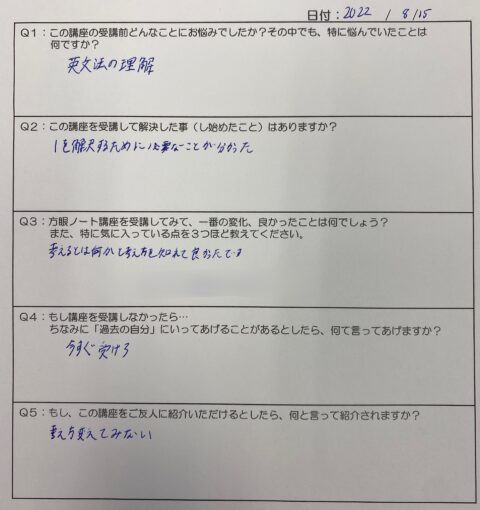 日付：2022 / 8/15
Q1：この講座の受講前どんなことにお悩みでしたか？その中でも、特に悩んでいたことは
何ですか？
英文法の理解
Q2：この講座を受講して解決した事（し始めたこと）はありますか？
1を解決するために必要なことが分かった
Q3：方眼ノート講座を受講してみて、一番の変化、良かったことは何でしょう？
また、特に気に入っている点を３つほど教えてください。
考えるとは何かて考え方を知れて良かったです
Q4：もし講座を受講しなかったら…
ちなみに「過去の自分」にいってあげることがあるとしたら、何て言ってあげますか？
今すぐ受けろ
Q5：もし、この講座をご友人に紹介いただけるとしたら、何と言って紹介されますか？
考え方変えてみない